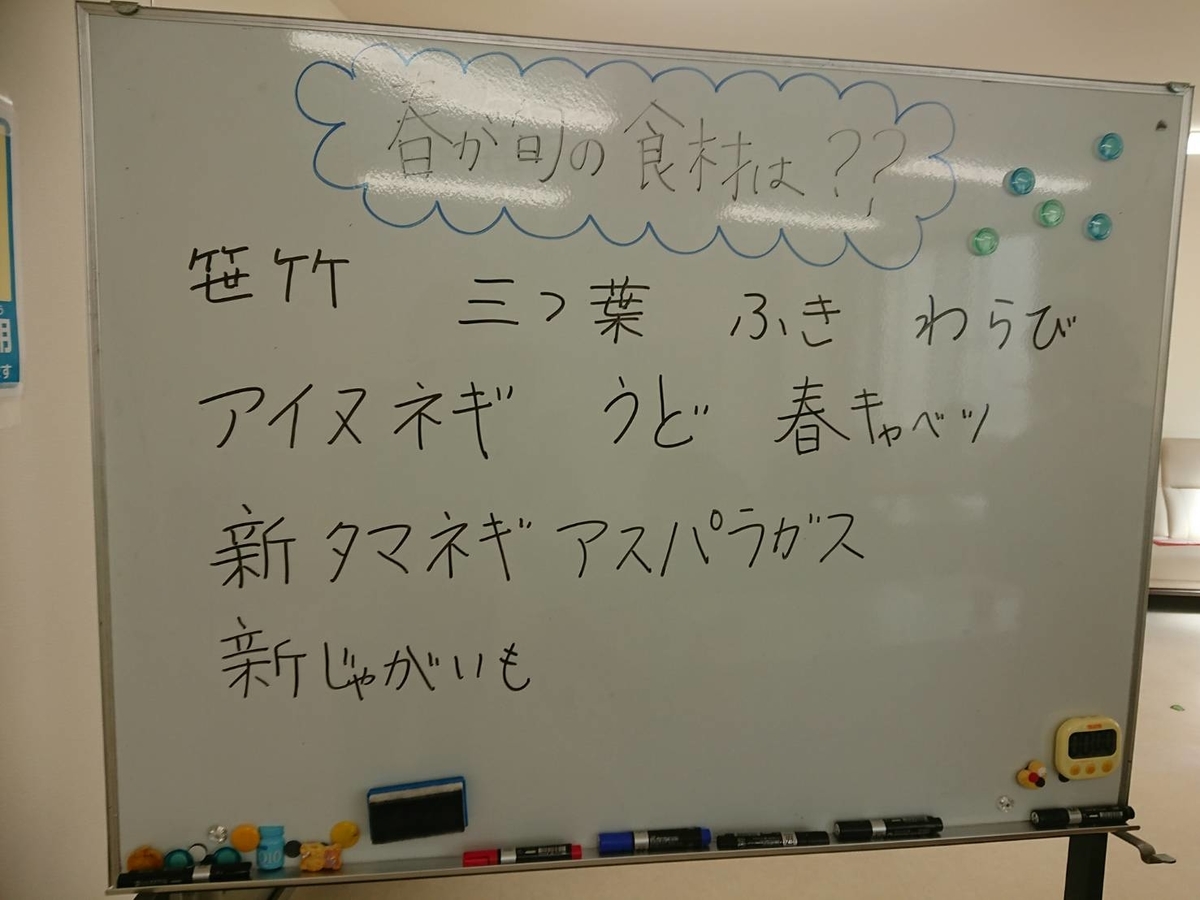 春が旬の食材は??
笹竹
三つ葉 ふき わらび
アイヌネギ うど 春キャベツ
新タマネギ アスパラガス
新じゃがいも